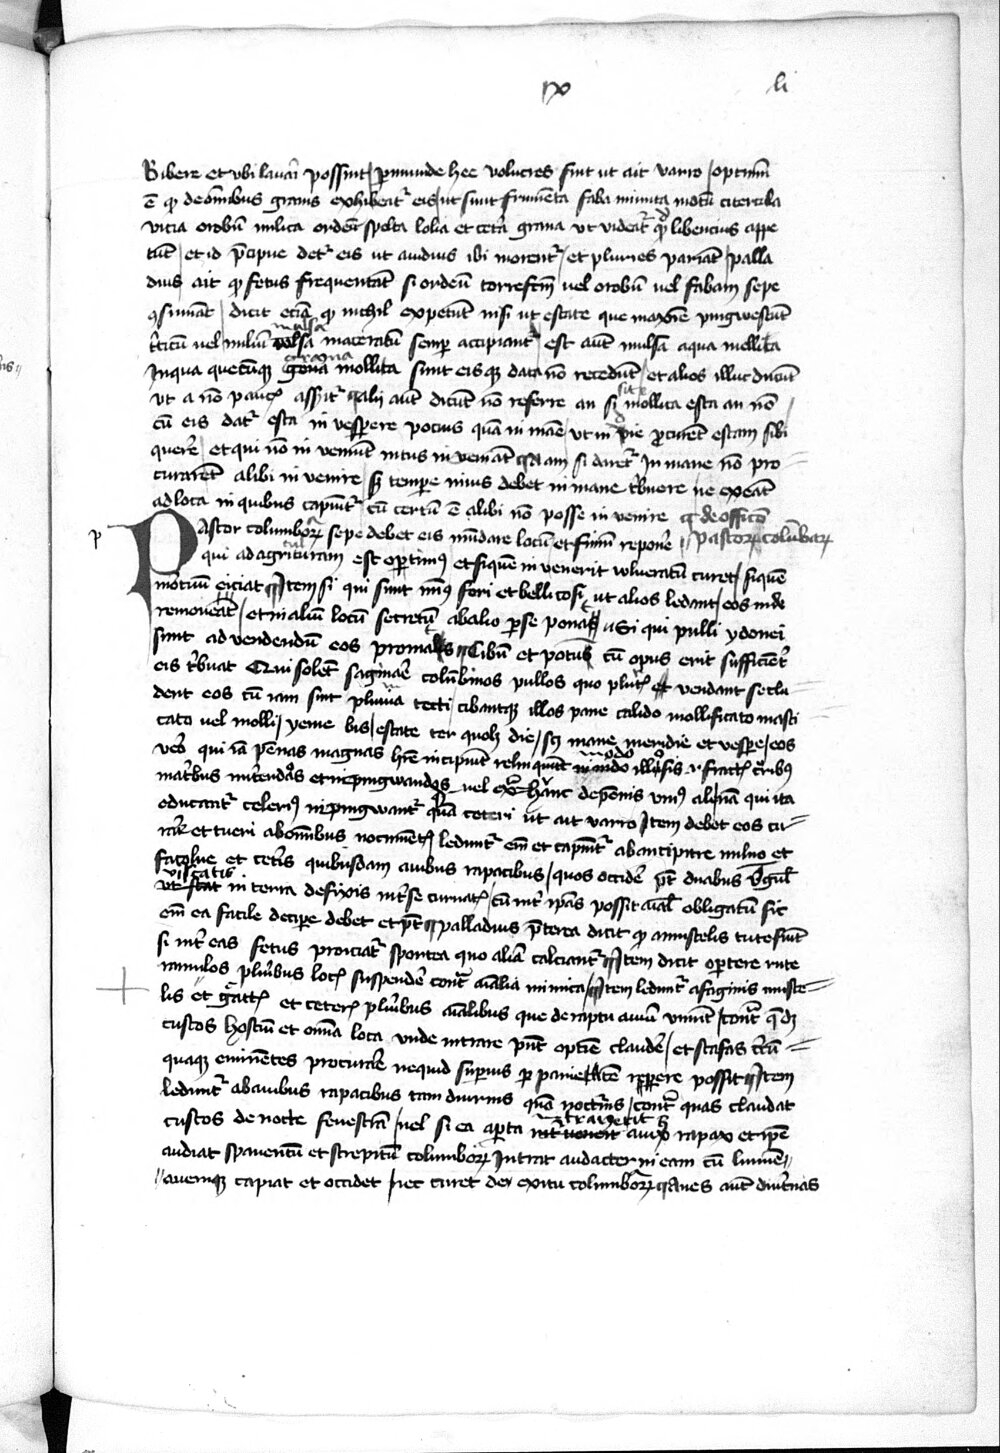 ıx li
Bibere et ubi lavari possint / proinde hee volucres sint ut ait varro / optimum
ē qđ de omnibus granis exhibeatr eis / ut sunt frumenta faba minuta motu cicercula
vicia orobum milica ordeum spelta lolia et cetera grana ut videatr qđ libencius appe
tunt / et id precipue detr eis ut avidius ibi morentr / et pluries pariant / palla
dius ait qđ fetus frequentant si ordeum torrefctm vel orobum vel fabam sepe
9sumant / dicit eciam qđ nichil expetunt nisi ut estate que maxime pingwescunt
triticum vel milium mulsa maceratum semper accipiant est autem mulsa aqua mellita
In qua quecunque grana mollita sunt eisque data non recedunt / et alios illuc ducunt
ut a non paucis asseritr alii autem dicunt non referre an sit mollita esca an non
cum eis datr esca in vespere pocius quam in mane / ut in die procurent escam sibi
querere / et qui non in veniunt intus in veniant nam si daretr In mane non pro=
curarent alibi in venire / sed tempore nivis debet in mane tribuere ne exeant
ad loca in quibus capiuntr cum certum ē alibi non posse in venire de officio
Pastor columborum sepe debet eis mundare locum et fimum reponere // pastorum columbarum
qui ad agriculturam est optimus et siquem in venerit vulneratum curet / siquem
mortuum eiciat Item si qui sunt nimis fori et bellicosi ut alios ledant / eos inde
removeat / et in alium locum secretum ab alio per se ponat // Si qui pulli ydonei
sunt ad vendendum eos promat // Cibum et potum cum opus erit sufficienter
eis tribuat Qui solent saginare columbinos pullos quo pluris vendant seclu=
dent eos cum iam sint pluma tecti / cibantque illos pane calido mollificato masti
cato vel molli / yeme bis / estate ter quolibet die / sed mane meridie et vespere / eos
vero qui iam pennas magnas habere incipiunt relinquunt in nido illesis fractis cruribus
matribus nutriendos et inpingwandos vel
educantr celerius inpingwantr quam ceteri ut ait varro Item debet eos cu=
rare et tueri ab omnibus nocumentis leduntr enim et capiuntr ab ancipitre milvo et
falcone et ceteris quibusdam avibus rapacibus / quos occidere potest duabus virgulis
viscatis in terra defixis inter se curvatis / cum inter ipsas possit animal obligatum sic
enim ea facile decipere debet et potest palladius preterea dicit qđ a mustelis tute fiunt
si inter eas fetus proiciatr spontea quo aliam calciantr Item dicit oportere rute
ramulos pluribus locis suspendere contra animalia inimica / Item leduntr a faginis muste=
lis et gattis et ceteris pluribus animalibus que de raptu avium vivunt / contra que
custos hostium et omnia loca unde intrare possunt optime claudere / et scafas circum=
quaque eminentes procurare nequid superius per parietem repere possit Item
leduntr ab avibus rapacibus tam diurnis quam nocturnis / contra quas claudat
custos de nocte fenestram / vel si ea aperta intraverit avis rapax et ipse
audiat spaventum et strepitum columborum Intrat audacter in eam cum lumine //
// avemque capiat et occidet / nec curet de exitu columborum aves autem diurnas